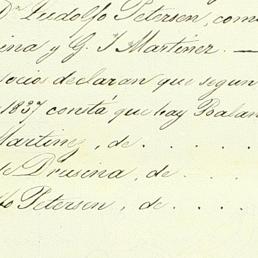 Dn. Ludolfo Petersen, com
ina y G. J Martinez. —
ocios declaran que segun
1837 constá que hay Balan
Martinez, de . . . . . .
de Drusina, de . . . .
fo Petersen, de . . . .